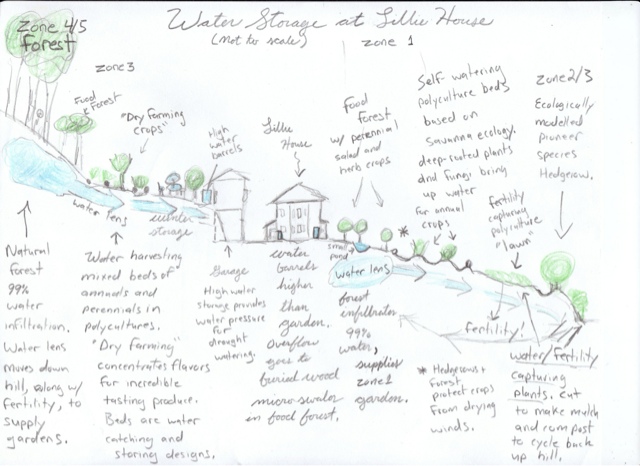 Water Storage at Lillie House
(not to scale)
Zone 4/5
Forest
zone 3
zone 1
Food
Forest
"Dry Farming
crops"
High
water
barrels
Lillie
House
Food
Forest
w/ perennial
salad and
herb crops
Self-watering
polyculture beds
based on
Savanna ecology.
deep-rooted plants
and fungi bring
up water
for annual
crops
*
zone 2/3
Ecologically
modelled
pioneer
species
Hedgerow.
fertility
capturing
polyculture
"lawn"
water lens
winter
storage
small
pond
water lens
Natural
forest
99%
water
infiltration.
Water lens
moves down
hill, along w/
fertility, to
supply
gardens.
Water harvesting
mixed beds of
annuals and
perennials in
polycultures.
"Dry Farming"
concentrates flavors
for incredible
tasting produce.
Beds are water
catching and
storing designs.
Garage
High water
storage provides
water pressure
for
drought
watering.
water
barrels
higher
than
garden.
overflow
goes to
buried wood
micro swales
in food forest.
forest
infiltrates
99%
water,
supplies
zone 1
garden.
* Hedgerows +
Forest
protect crops
from drying
winds.
fertility!
water/fertility
capturing
plants. cut
to make mulch
and compost
to cycle back
up hill.